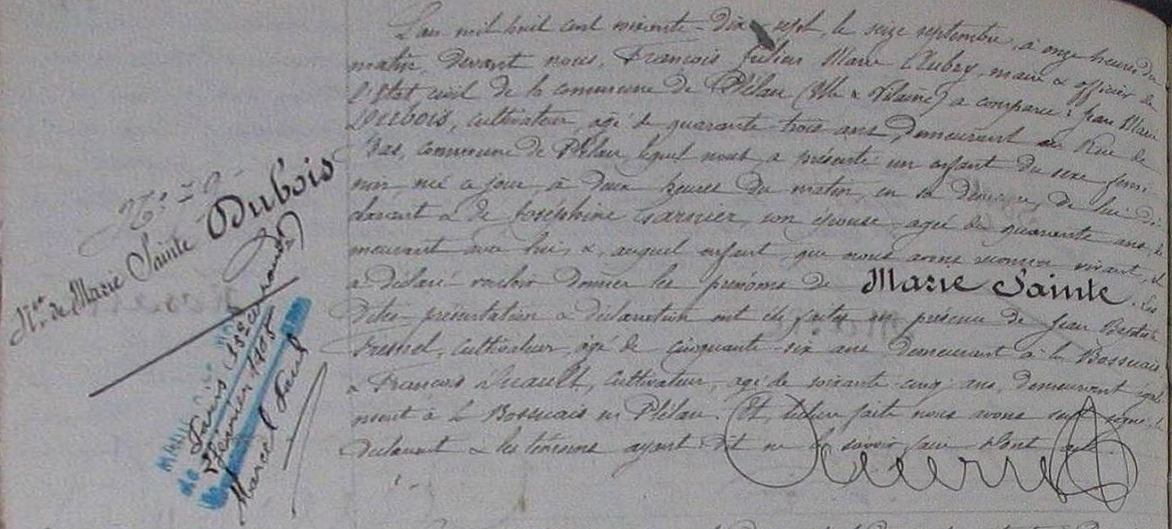 N° 79
N.ce de Marie Sainte Dubois
Mariée
de
Paris 13e arrond
Février 1905
Marcel Paul
L'an mil huit cent soixante-dix sept, le seize septembre, à onze heures du
matin, devant nous, François Julien Marie Aubry, maire & officier de
l'Etat civil de la commune de Plélan (Ille & Vilaine) a comparu : Jean Marie
Dubois, cultivateur, agé de quarante trois ans, demeurant au Rue de
Bas, commune de Plélan, lequel nous a présenté un enfant du sexe fémi-
nin né ce jour, à deux heures du matin, en sa demeure, de lui dé-
clarant & de Joséphine Garnier, son épouse, agée de quarante ans, de-
meurant avec lui, &, auquel enfant, que nous avons reconnu vivant, il
a déclaré vouloir donner les prénoms de Marie Sainte. Les
dites présentation & déclaration ont été faites en présence de Jean Baptiste
cultivateur, agé de cinquante-six ans demeurant à la Bossuais
& François cultivateur, agé de soixante-cinq ans, demeurant égale-
ment à la Bossuais en Plélan. Et, lecture faite nous avons seul signé, le
déclarant & les témoins ayant dit ne le savoir faire dont acte.